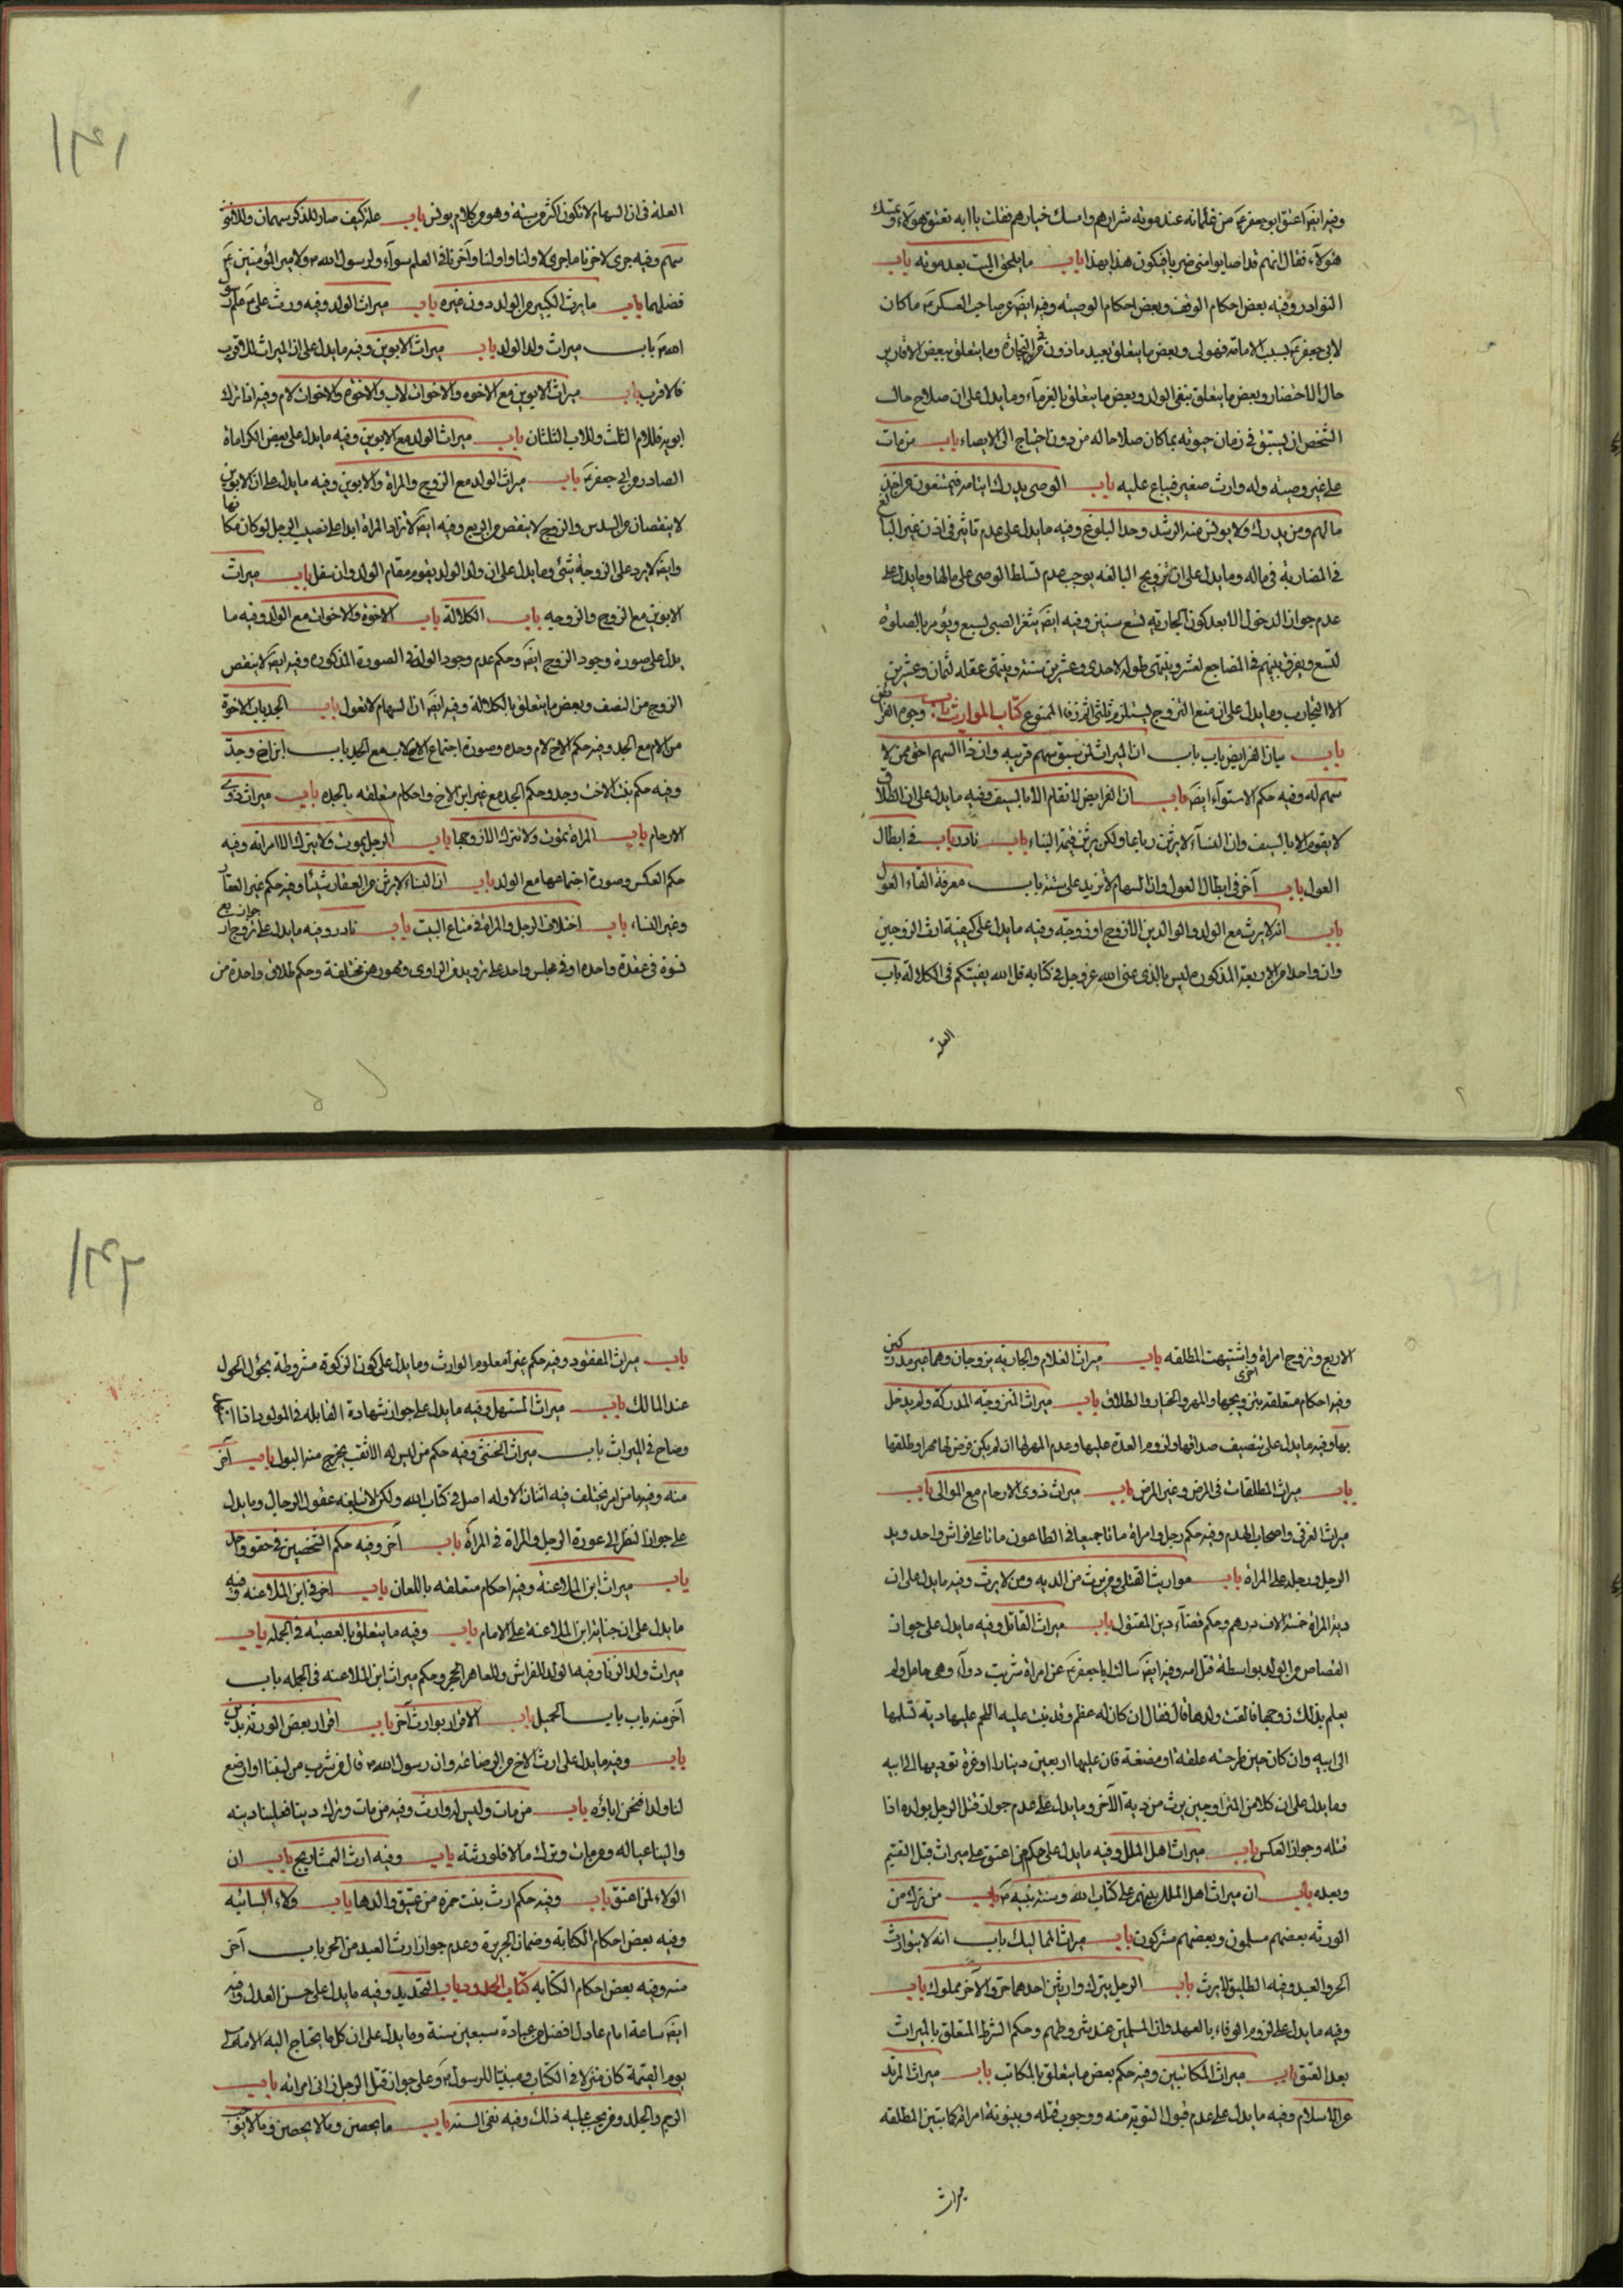 وفيه ايضا اعتق ابو جعفر ع من غلمانه عند موته شرارهم وامسك خيارهم فقلت يا ابه تعتق هولاء وتمسك
هولاء فقال انهم قد اصابوا مني ضربا فيكون هذا بهذا باب ما يلحق الميت بعد موته باب
النوادر وفيه بعض احكام الوقف وبعض احكام الوصيه وفيه ايضا عن صاحب العسكر ع ما كان
لابي جعفر ع بسبب الامامة فهو لي وبعض ما يتعلق بعبد ماذون في التجارة وما يتعلق ببعض الاقارير
حال الاحتضار وبعض ما يتعلق بنفي الولد وبعض ما يتعلق بالغرماء وما يدل على ان صلاح حال
الشخص ان يستبق في زمان حيوته بما كان صلاحا له من دون احتياج الى الايصاء باب من مات
على غير وصيته وله وارث صغير فيباع عليه باب الوصي يدرك ايتامه فيمتنعون من اخذ
مالهم ومن يدرك ولا يونس منه الرشد وحد البلوغ وفيه ما يدل على عدم تاثير في اذن غير البالغ
في المضاربة في ماله وما يدل على ان تزويج البالغه يوجب عدم تسلط الوصي على مالها وما يدل على
عدم جواز الدخول الا بعد كون الجارية تسع سنين وفيه ايضا يثغر الصبي لسبع ويؤمر بالصلوة
لتسع ويفرق بينهم في المضاجع لعشر وينتهي طوله لاحدى وعشرين سنه وينتهي عقله لثمان وعشرين
الا التجارب وما يدل على ان منع التزوج يستلزم ثلثي اثم زنا الممنوع كتاب المواريث باب وجوه الفرائض
باب بيان الفرايض باب باب ان الميراث لمن سبق سهم قريبه وان ذا السهم احق ممن لا
سهم له وفيه حكم الاستواء ايضا باب ان الفرايض لا تقام الا بالسيف وفيه ما يدل على ان الطلاق
لا يقوم الا بالسيف وان النساء لا يرثن رباعا ولكن يرثن قيمة البناء باب نادر باب في ابطال
العول باب آخر في ابطال العول وان السهام لا تزيد على ستة باب معرفة القاء العول
باب انه لا يرث مع الولد والوالدين الا زوج او زوجة وفيه ما يدل على كيفية ارث الزوجين
وان واحدا من الاربعة المذكوره ليس بالذي عنى الله عز وجل في كتابه قل الله يفتيكم في الكلالة باب
العلة
العلة في ان السهام لا تكون اكثر من ستة وهو من كلام يونس باب علة كيف صار للذكر سهمان وللانثى
سهم وفيه جرى لاخرنا ما جرى لاولنا واولنا وآخرنا في العلم سواء ولرسول الله ص ولامير المؤمنين ع
فضلهما باب ما يرث الكبير من الولد دون غيره باب ميراث الولد وفيه ورث علي ع علم رسول
الله ص باب ميراث ولد الولد باب ميراث الابوين وفيه ما يدل على ان الميراث للاقرب
فالاقرب باب ميراث الابوين مع الاخوة والاخوات لاب والاخوة والاخوات لام وفيه اذا ترك
ابويه فللام الثلث وللاب الثلثان باب ميراث الولد مع الابوين وفيه ما يدل على بعض الكرامات
الصادره من ابي جعفر ع باب ميراث الولد مع الزوج والمراة والابوين وفيه ما يدل على ان الابوين
لا ينقصان من السدس والزوج لا ينقص من الربع وفيه ايضا لا تزاد المراة ابدا على نصيب الرجل لو كان مكانها
وايضا لا يرد على الزوجة شئ وما يدل على ان ولد الولد يقوم مقام الولد وان سفل باب ميراث
الابوين مع الزوج والزوجه باب الكلالة باب الاخوة والاخوات مع الولد وفيه ما
يدل على صورة وجود الزوج ايضا وحكم عدم وجود الولد في الصورة المذكوره وفيه ايضا لا ينقص
الزوج من النصف وبعض ما يتعلق بالكلالة وفيه ايضا ان السهام لا تعول باب الجد باب الاخوة
من الام مع الجد وفيه حكم الاخ لام وحده وصورة اجتماع الاخ لاب مع الجد باب ابن اخ وجد
وفيه حكم بنت الاخت وجد وحكم الجد مع غير ابن الاخ واحكام متعلقه بالجده باب ميراث ذوي
الارحام باب المراة تموت ولا تترك الا زوجها باب الرجل يموت ولا يترك الا امراته وفيه
حكم العكس وصورة اجتماعها مع الولد باب ان النساء لا يرثن من العقار شيئا وفيه حكم غير العقار
وغير النساء باب اختلاف الرجل والمراة في متاع البيت باب نادر وفيه ما يدل على جواز تزوج اربع
نسوة في عقدة واحده او في مجلس واحد على ترديد من الراوي ومهورهن مختلفة وحكم طلاق واحدة من
الاربع وتزوج امراة اخرى واشتبهت المطلقه باب ميراث الغلام والجارية يزوجان وهما غير مدركين
وفيه احكام متعلقه بتزويجها والمهر والخيار والطلاق باب ميراث المتزوجة المدركة ولم يدخل
بها وفيه ما يدل على تنصيف صداقها ولزوم العدة عليها وعدم المهر لها ان لم يكن فرض لها مهر او طلقها
باب ميراث المطلقات في المرض وغير المرض باب ميراث ذوي الارحام مع الموالي باب
ميراث الغرقى واصحاب الهدم وفيه حكم رجل وامراة ماتا جميعا في الطاعون ماتا على فراش واحد ويد
الرجل ورجله على المراة باب مواريث القتلى ومن يرث من الديه ومن لا يرث وفيه ما يدل على ان
دية المراة خمسة الاف درهم وحكم قضاء دين المقتول باب ميراث القاتل وفيه ما يدل على جواز
القصاص من الولد بواسطة قتل امه وفيه ايضا سالت ابا جعفر ع عن امراة شربت دواء وهي حامل ولم
يعلم بذلك زوجها فالقت ولدها قال فقال ان كان له عظم وقد نبت عليه اللحم عليها دية تسلمها
الى ابيه وان كان حين طرحته علقة او مضغة فان عليها اربعين دينارا او غرة تؤديها الى ابيه
وما يدل على ان كلا من الزوجين يرث من دية الآخر وما يدل على عدم جواز قتل الرجل بولده اذا
قتله وجواز العكس باب ميراث اهل الملل وفيه ما يدل على حكم من اعتق على ميراث قبل القسم
وبعده باب ان ميراث اهل الملل بينهم على كتاب الله وسنة نبيه ص باب من ترك من
الورثه بعضهم مسلمون وبعضهم مشركون باب ميراث المماليك باب انه لا يتوارث
الحر والعبد وفيه الطليق لا يرث باب الرجل يترك وارثين احدهما حر والآخر مملوك باب
وفيه ما يدل على لزوم الوفاء بالعهد وان المسلمين عند شروطهم وحكم الشرط المتعلق بالميراث
بعد العتق باب ميراث المكاتبين وفيه حكم بعض ما يتعلق بالمكاتب باب ميراث المرتد
عن الاسلام وفيه ما يدل على عدم قبول التوبة منه ووجوب قتله وبينونة امراته كما تبين المطلقه
ميراث
باب ميراث المفقود وفيه حكم غير معلوم الوارث وما يدل على كون الزكوة مشروطة بحؤل الحول
عند المالك باب ميراث المستهل وفيه ما يدل على جواز شهادة القابله في المولود اذا
وصاح في الميراث باب ميراث الخنثى وفيه حكم من ليس له الا ثقب يخرج منه البول باب آخر
منه وفيه ما من امر يختلف فيه اثنان الا وله اصل في كتاب الله ولكن لا تبلغه عقول الرجال وما يدل
على جواز النظر الى عورة الرجل والمراة في المرآة باب آخر وفيه حكم الشخصين في حقو واحد
باب ميراث ابن الملاعنة وفيه احكام متعلقه باللعان باب اخر في ابن الملاعنه وفيه
ما يدل على ان جناية ابن الملاعنة على الامام باب وفيه ما يتعلق بالعصبة في الجمله باب
ميراث ولد الزنا وفيه الولد للفراش وللعاهر الحجر وحكم ميراث ابن الملاعنه في الجمله باب
آخر منه باب باب الحميل باب الاقرار بوارث آخر باب اقرار بعض الورثة بدين
باب وفيه ما يدل على ارث الاخ من الرضاعة وان رسول الله ص قال من شرب من لبننا او ارضع
لنا ولدا فنحن اباؤه باب من مات وليس له وارث وفيه من مات وترك دينا فعلينا دينه
والينا عياله ومن مات وترك مالا فلورثته باب وفيه ارث باب ان
الولاء لمن اعتق باب وفيه حكم ارث بنت حمزه من عتيق والدها باب ولاء السائبه
وفيه بعض احكام الكتابه وضمان الجريرة وعدم جواز ارث العبد من الحر باب آخر
منه وفيه بعض احكام الكتابه كتاب الحدود باب التحديد وفيه ما يدل على حسن العدل وفيه
ايضا ساعة امام عادل افضل من عبادة سبعين سنة وما يدل على ان كل ما يحتاج اليه الامه الى
يوم القيمة كان منزلا في الكتاب ومبينا للرسول ص وعلى جواز قتل الرجل زانى امراته باب
الرجم والجلد ومن يجب عليه ذلك وفيه نفي السنه باب ما يحصن وما لا يحصن وما لا يوجب